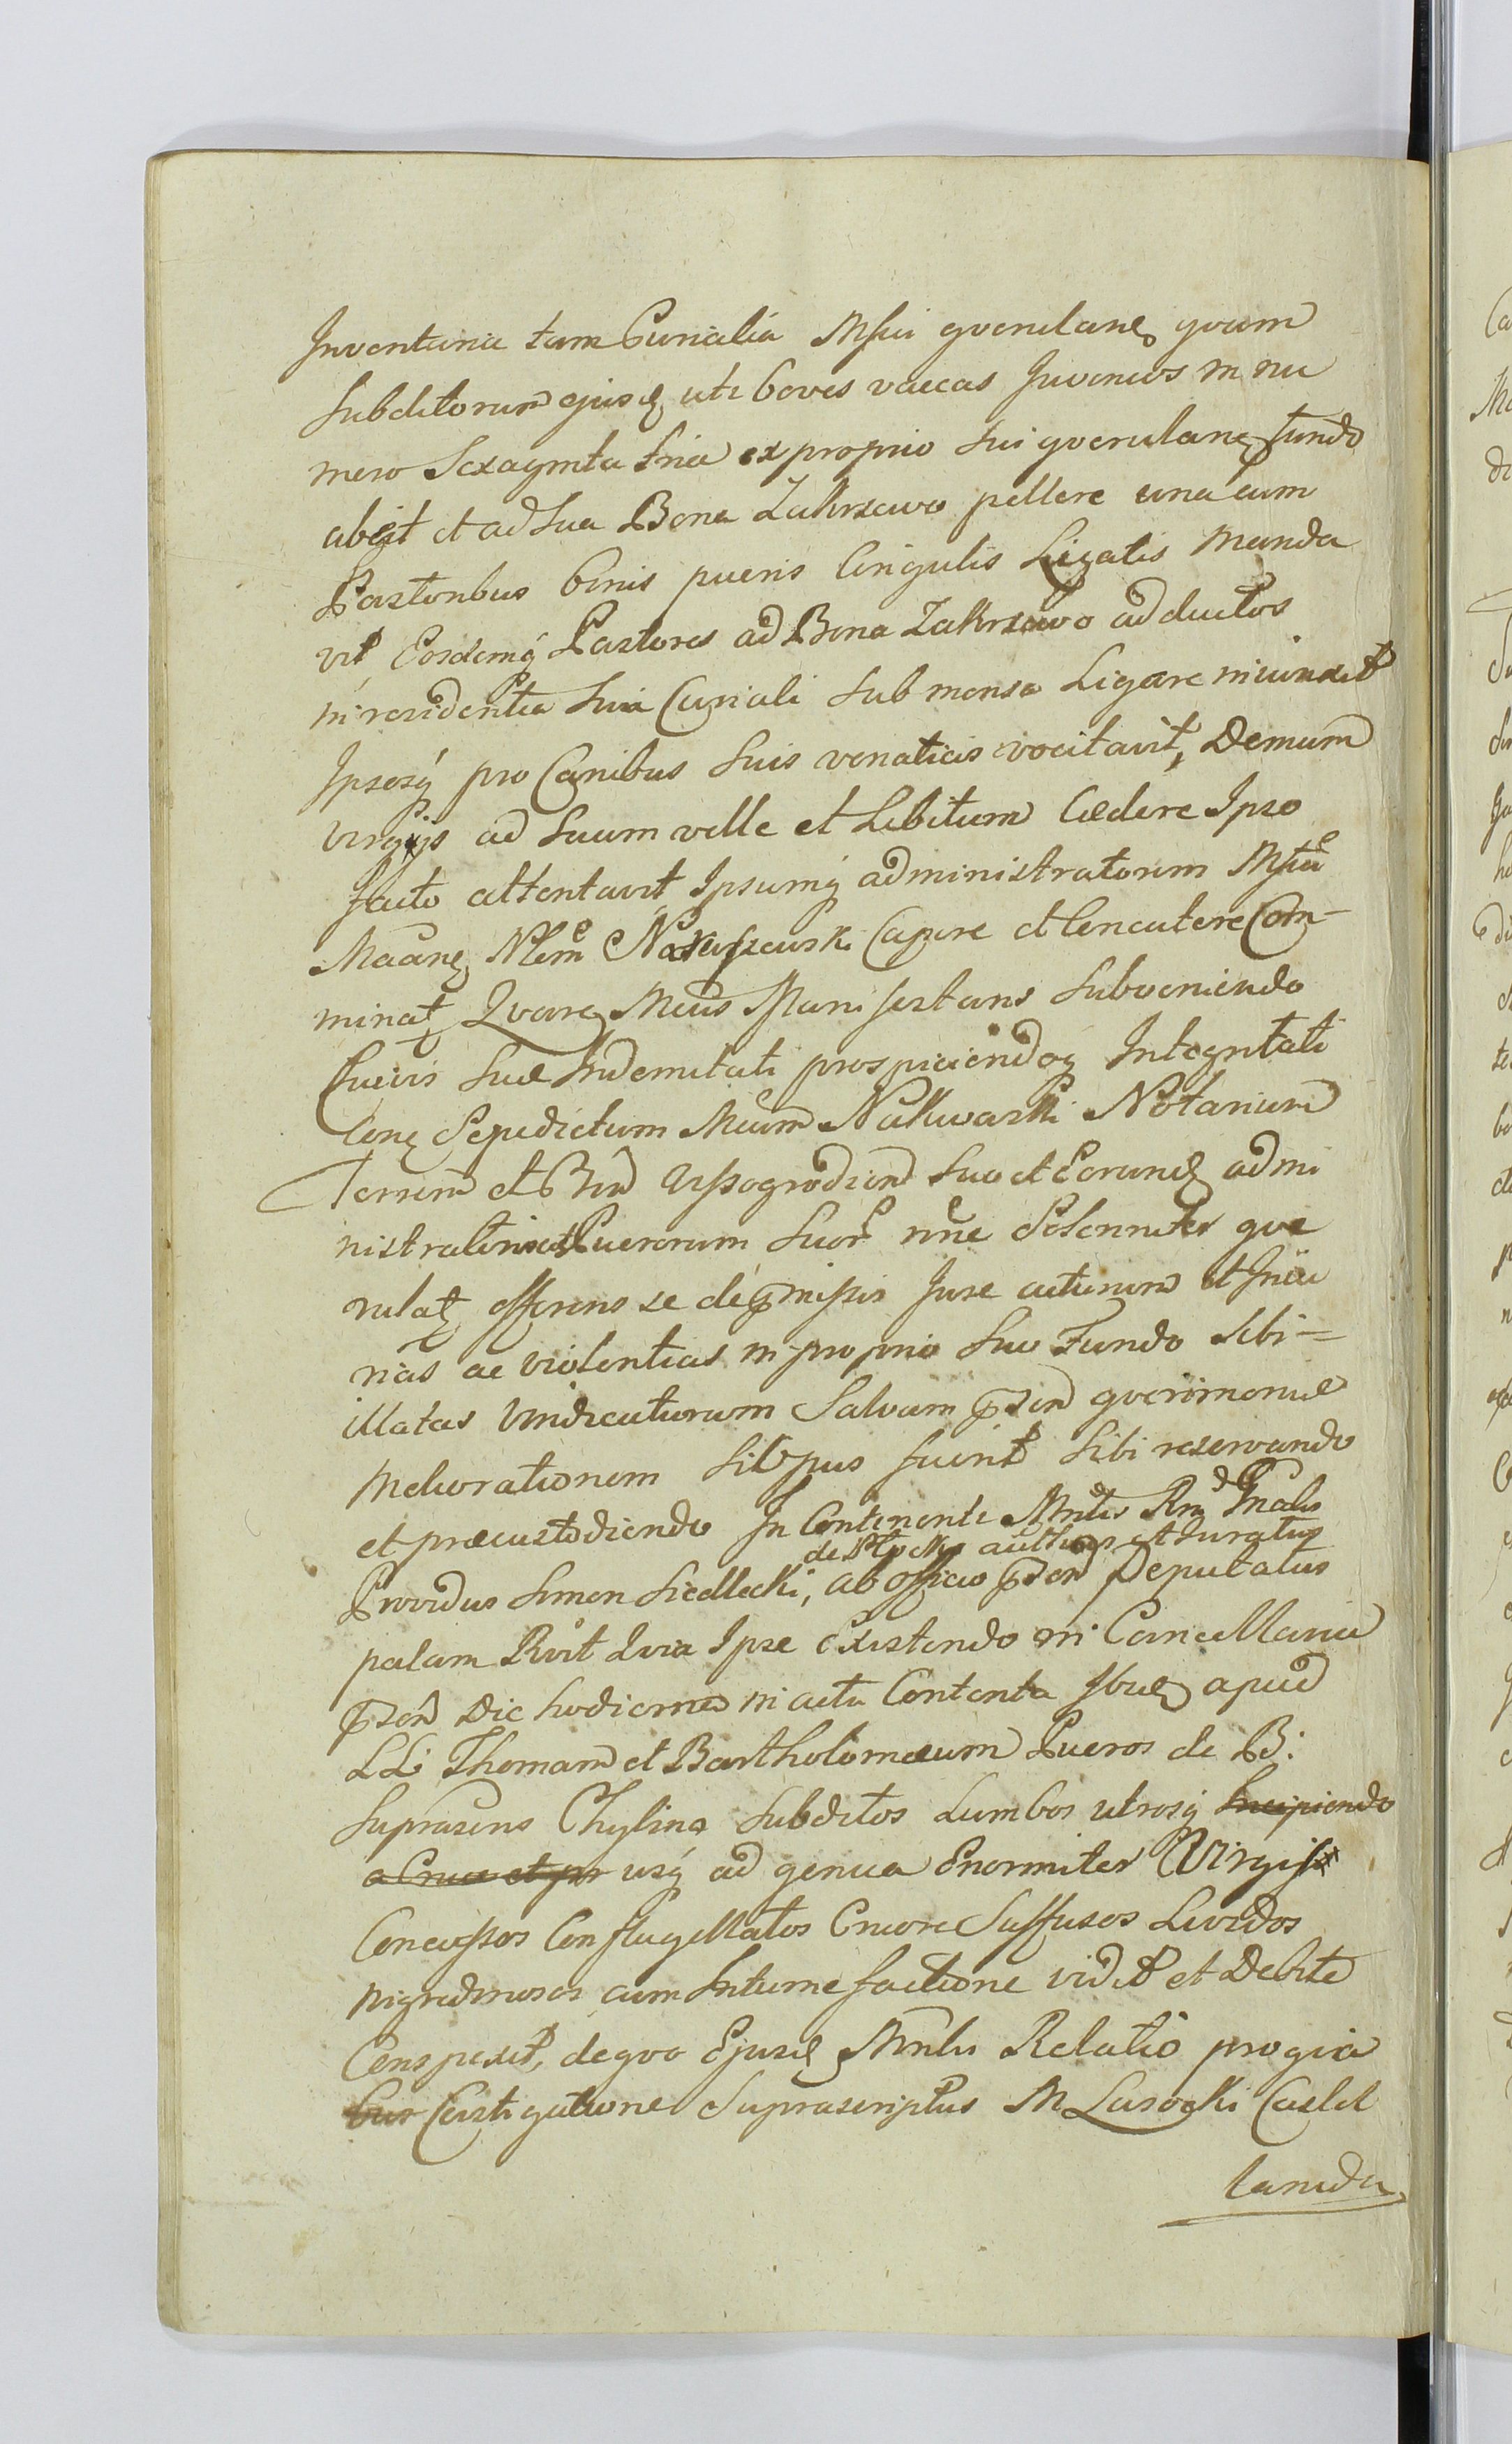 Inventaria tam Curialia Msui qverulane qvam
Subditorum ejusd uti boves vaccas Juvencos in nu
mero Sexaginta tria ex proprio sui qverulane fundo
abegit et ad sua Bona Zakrzewo pellere una cum
Pastoribus binis pueris Cingulis Ligatis Manda
vit, Eosdemq Pastores ad Bona Zakrzewo adductos
in residentia sua Curiali sub mensa Ligare iniunxit
Ipsosq pro Canibus suis venaticis vocitavit, Demum
virgis ad suum velle et Libitum Cædere Ipso
facto attentavit Ipsumq administratorem
Nlem Capere et Concutere Com-
minat Qvare Mcus Manifestans Subveniendo
suæ Indemnitati prospiciendoq Integritati
Cone Sepedictum Mcum Nakwaski Notarium
Terrem et Bin Wyssogrodien suo et Eorund admi
nistratoris et Puerorum suor nne Solenniter qve
rulat offerens se de præmissis Jure acturum et Iniu
rias ac violentias in proprio suo Fundo sibi=
illatas Vindicaturum Salvam præsen qverimoniæ
Meliorationem si opus fuerit sibi reservando
et præcustodiendo In Continenti Mnlis Rni Gnalis
de Plocko authen et Juratus
Providus Simon Siedlecki, ab officio præsen Deputatus
palam Rvit Qvia Ipse Existendo in Cancellaria
præsen Die hodierna in actu Contenta Ibid apud
LL Thomam et Bartholomæum Pueros de B:
Suprascris Chylina subditos Lumbos utrosq Incipiendo
a Crure et per usq ad genua Enormiter Virgis
Concussos Conflagellatos Cruore Suffusos Lividos
nigredinosos cum Intumefactione vidit et Debite
Conspexit, de qvo Ejusd Mnlis Relatio pro qvia
bus Castigatione Suprascriptus M Lasocki Castel
lanida